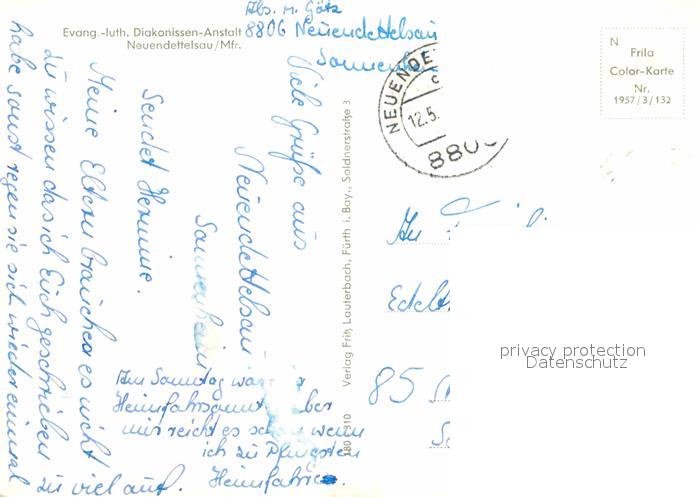 Abs. M. Götz
8806 Neuendettelsau
Sonnenhe
Evang.-luth. Diakonissen-Anstalt
Neuendettelsau/Mfr.
N
Frila
Color-Karte
Nr.
1957/3/132
NEUENDE
12.5.
880
Viele Grüße aus
Neuendettelsau
Sonnenheim
Sendet Hermine.
Meine Eltern brauchen es nicht
zu wissen das ich Euch geschrieben
habe sonst regen sie sich wieder einmal
zu viel auf.
Am Sonntag war
Heimfahrsonnt ber
mir reicht es schon wenn
ich zu Pfingsten
Heimfahre.
Verlag Fritz Lauterbach, Fürth i. Bay., Soldnerstraße 3
An
Edelt
85
privacy protection
Datenschutz